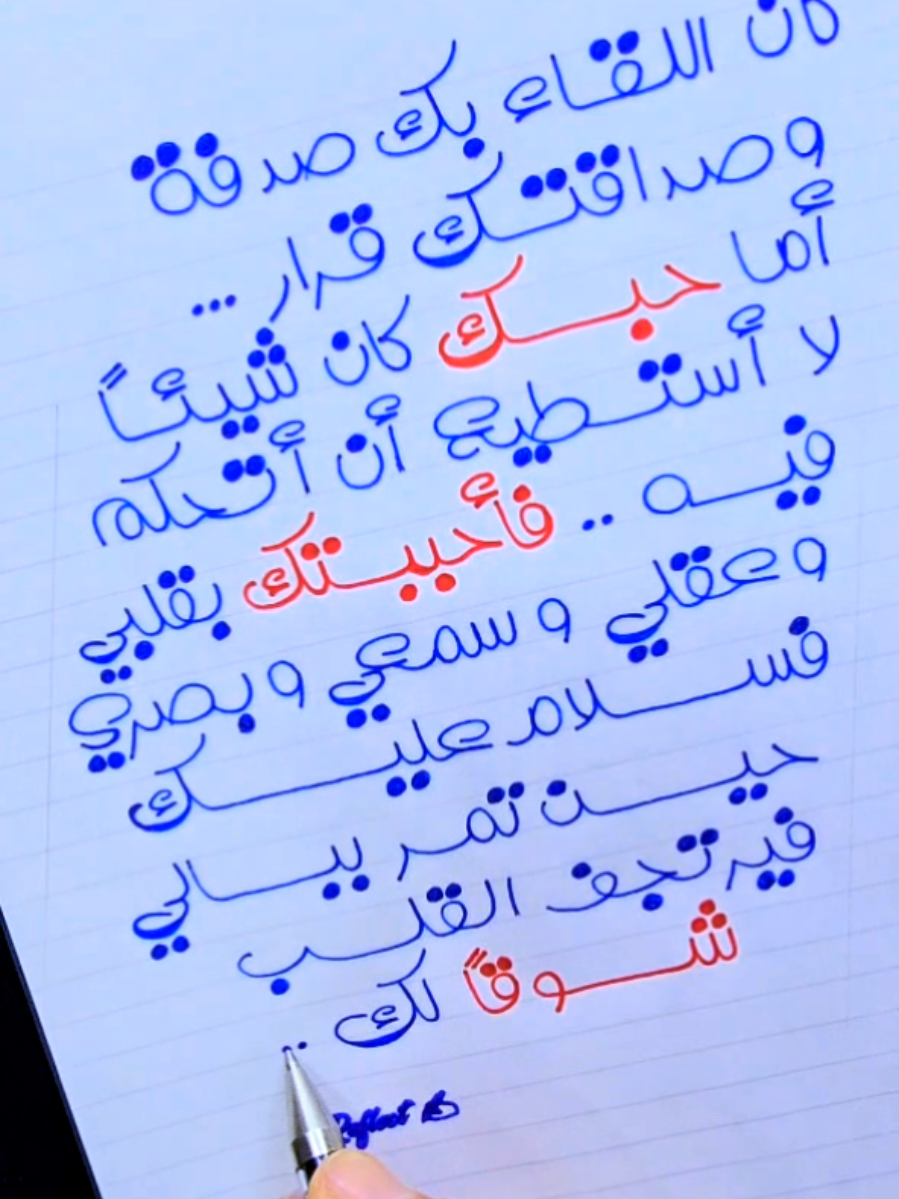 كان اللقاء بك صدفة
وصداقتك قرار ...
أما حبك كان شيئاً
لا أستطيع أن أتحكم
فيه .. فأحببتك بقلبي
وعقلي وسمعي وبصري
فسلام عليك
حين تمر ببالي
فيرتجف القلب
شوقاً لك ..
Reflect